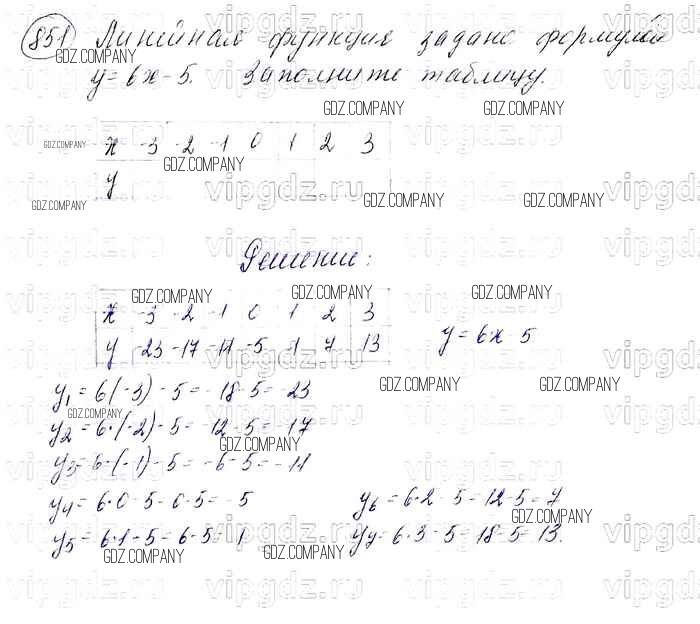 851 Линейная функция задана формулой
y = 6x - 5. Заполните таблицу.
x -3 -2 -1 0 1 2 3
y
Решение:
x -3 -2 -1 0 1 2 3
y -23 -17 -11 -5 1 7 13
y = 6x - 5
y1 = 6·(-3) - 5 = -18 - 5 = -23
y2 = 6·(-2) - 5 = -12 - 5 = -17
y3 = 6·(-1) - 5 = -6 - 5 = -11
y4 = 6·0 - 5 = 0 - 5 = -5
y5 = 6·1 - 5 = 6 - 5 = 1
y6 = 6·2 - 5 = 12 - 5 = 7
y7 = 6·3 - 5 = 18 - 5 = 13.
GDZ.COMPANY
vipgdz.ru